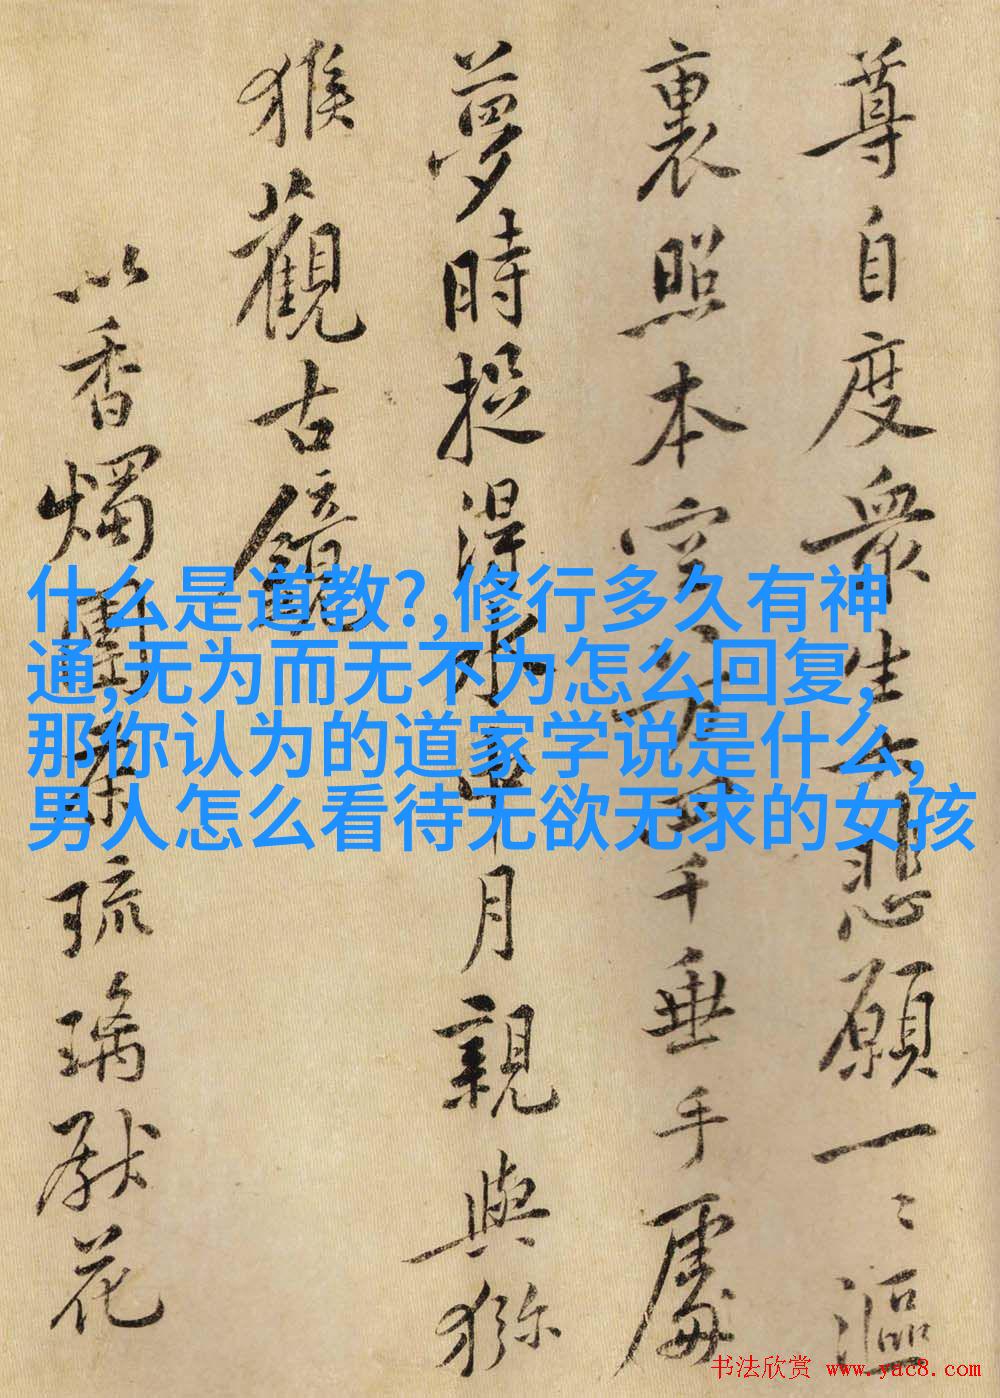 尊自度衆生大悲願一〻漚
裏照本空八万四千垂手處
夢時捉得水中月親與獼
猴觀古鏡
以香燭團茶琉璃獻花
什么是道教?,修行多久有神
通,无为而无不为怎么回复,
那你认为的道家学说是什么,
男人怎么看待无欲无求的女孩
书法欣赏 www.yac8.com